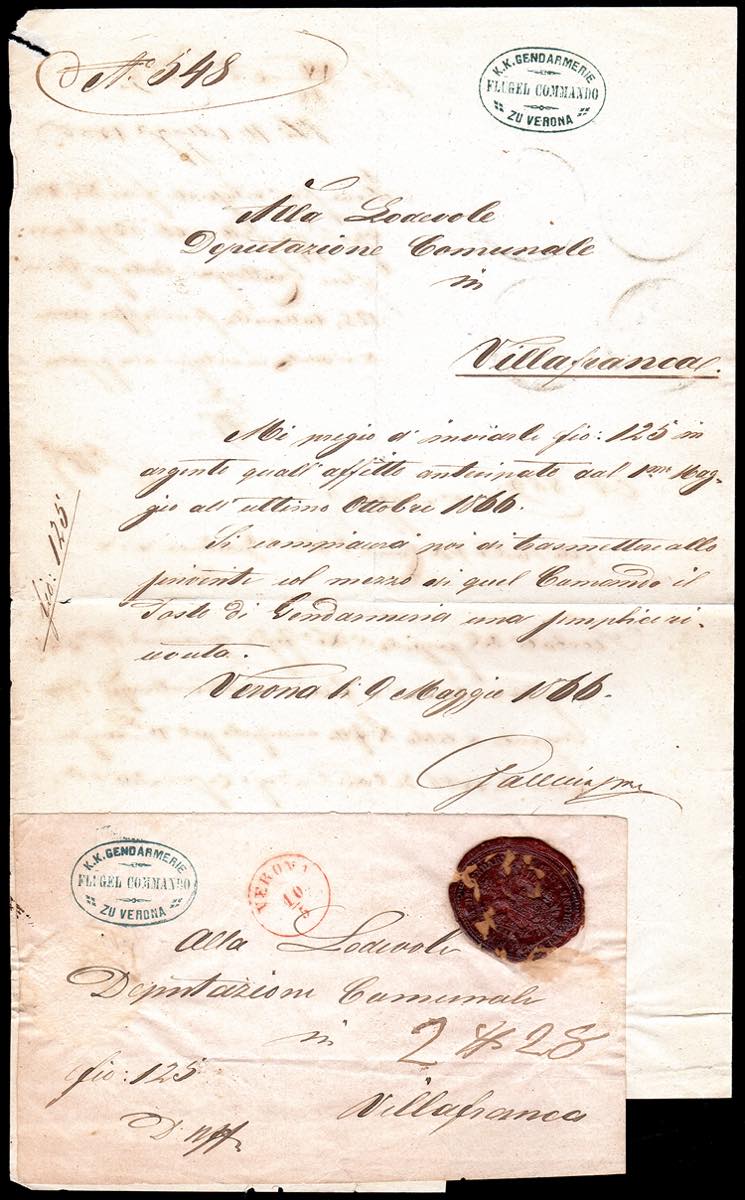 Nº 548
K.K. GENDARMERIE
FLÜGEL COMMANDO
ZU VERONA
Alla Lodevole
Deputazione Comunale
in
Villafranca.
Mi pregio d'inviarle fio: 125 in
argento quall'affitto antecipato dal 1mo Mag-
gio all'ultimo Ottobre 1866.
Si compiacerà poi di trasmettere allo
scrivente col mezzo di quel Comando il
Posto di Gendarmeria una semplice ri-
cevuta.
fio: 125
Verona li 9 Maggio 1866.
K.K. GENDARMERIE
FLÜGEL COMMANDO
ZU VERONA
VERONA
10
Alla Lodevole
Deputazione Comunale
in
2 28
fio: 125
Villafranca